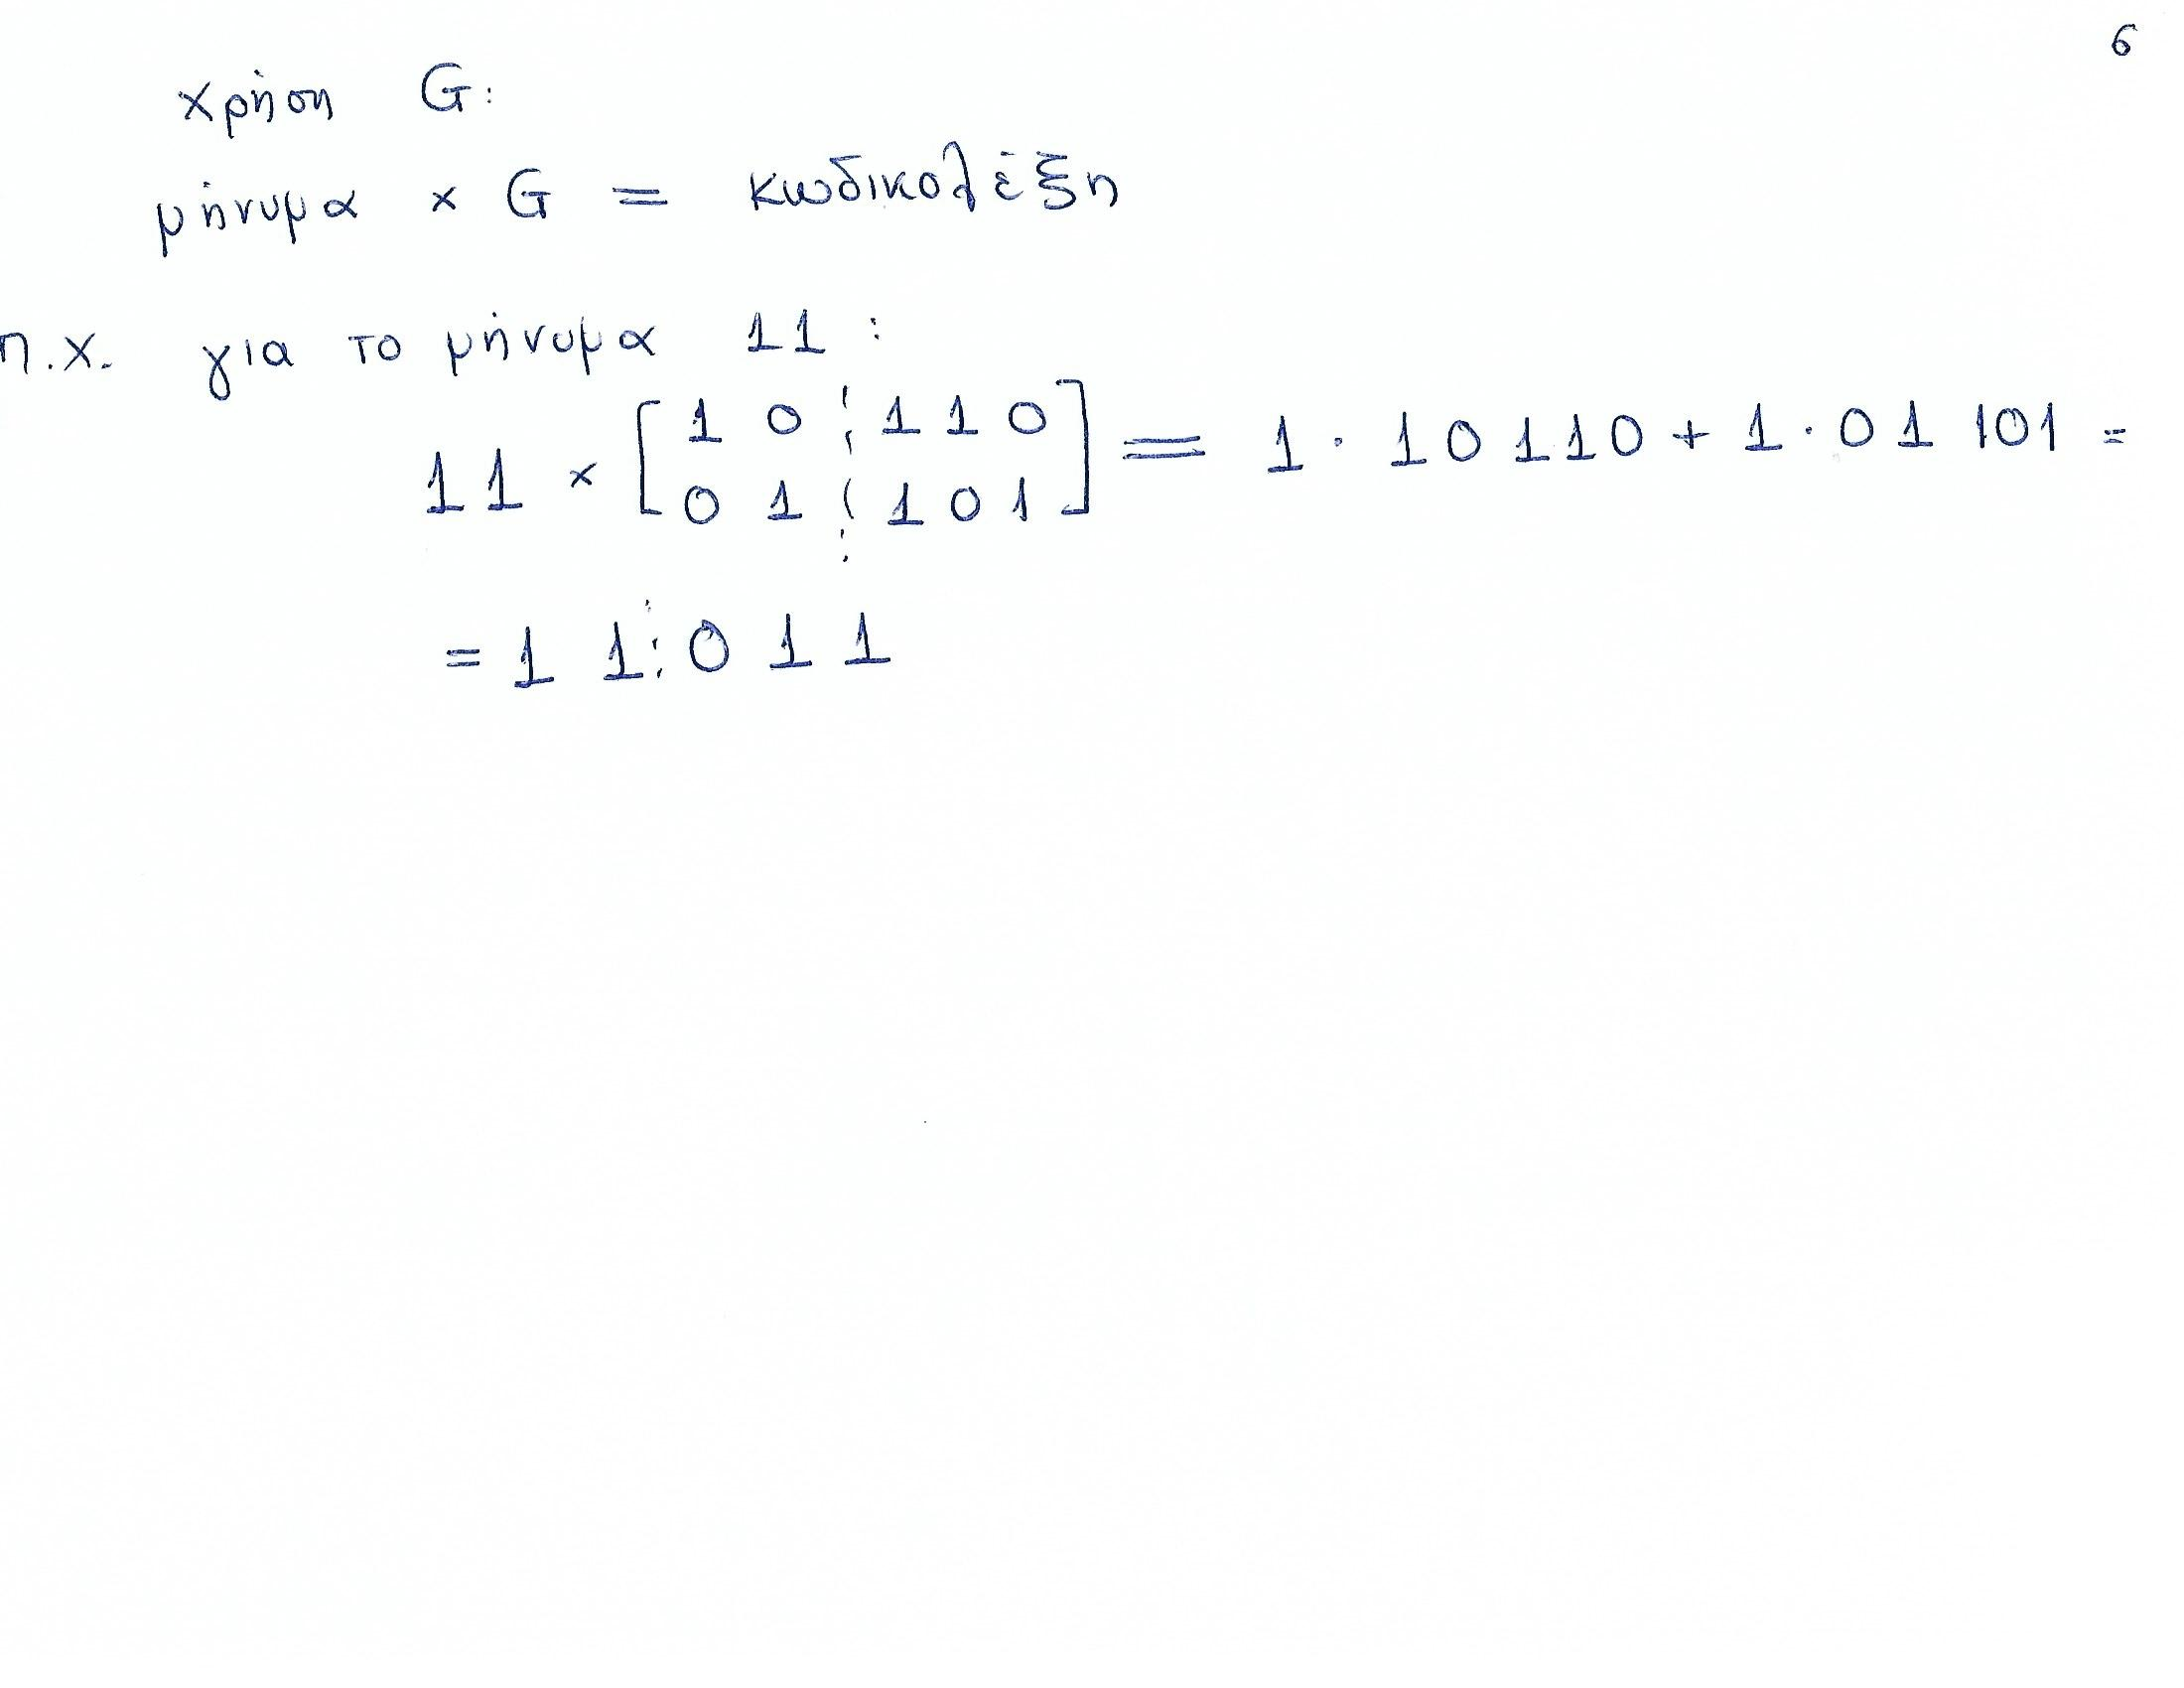 6
χρήση G:
μήνυμα x G = κωδικολέξη
π.χ. για το μήνυμα 11 :
11 x [1 0 ¦ 1 1 0
0 1 ¦ 1 0 1] = 1 · 10 110 + 1 · 01 101 =
= 1 1 ¦ 0 1 1